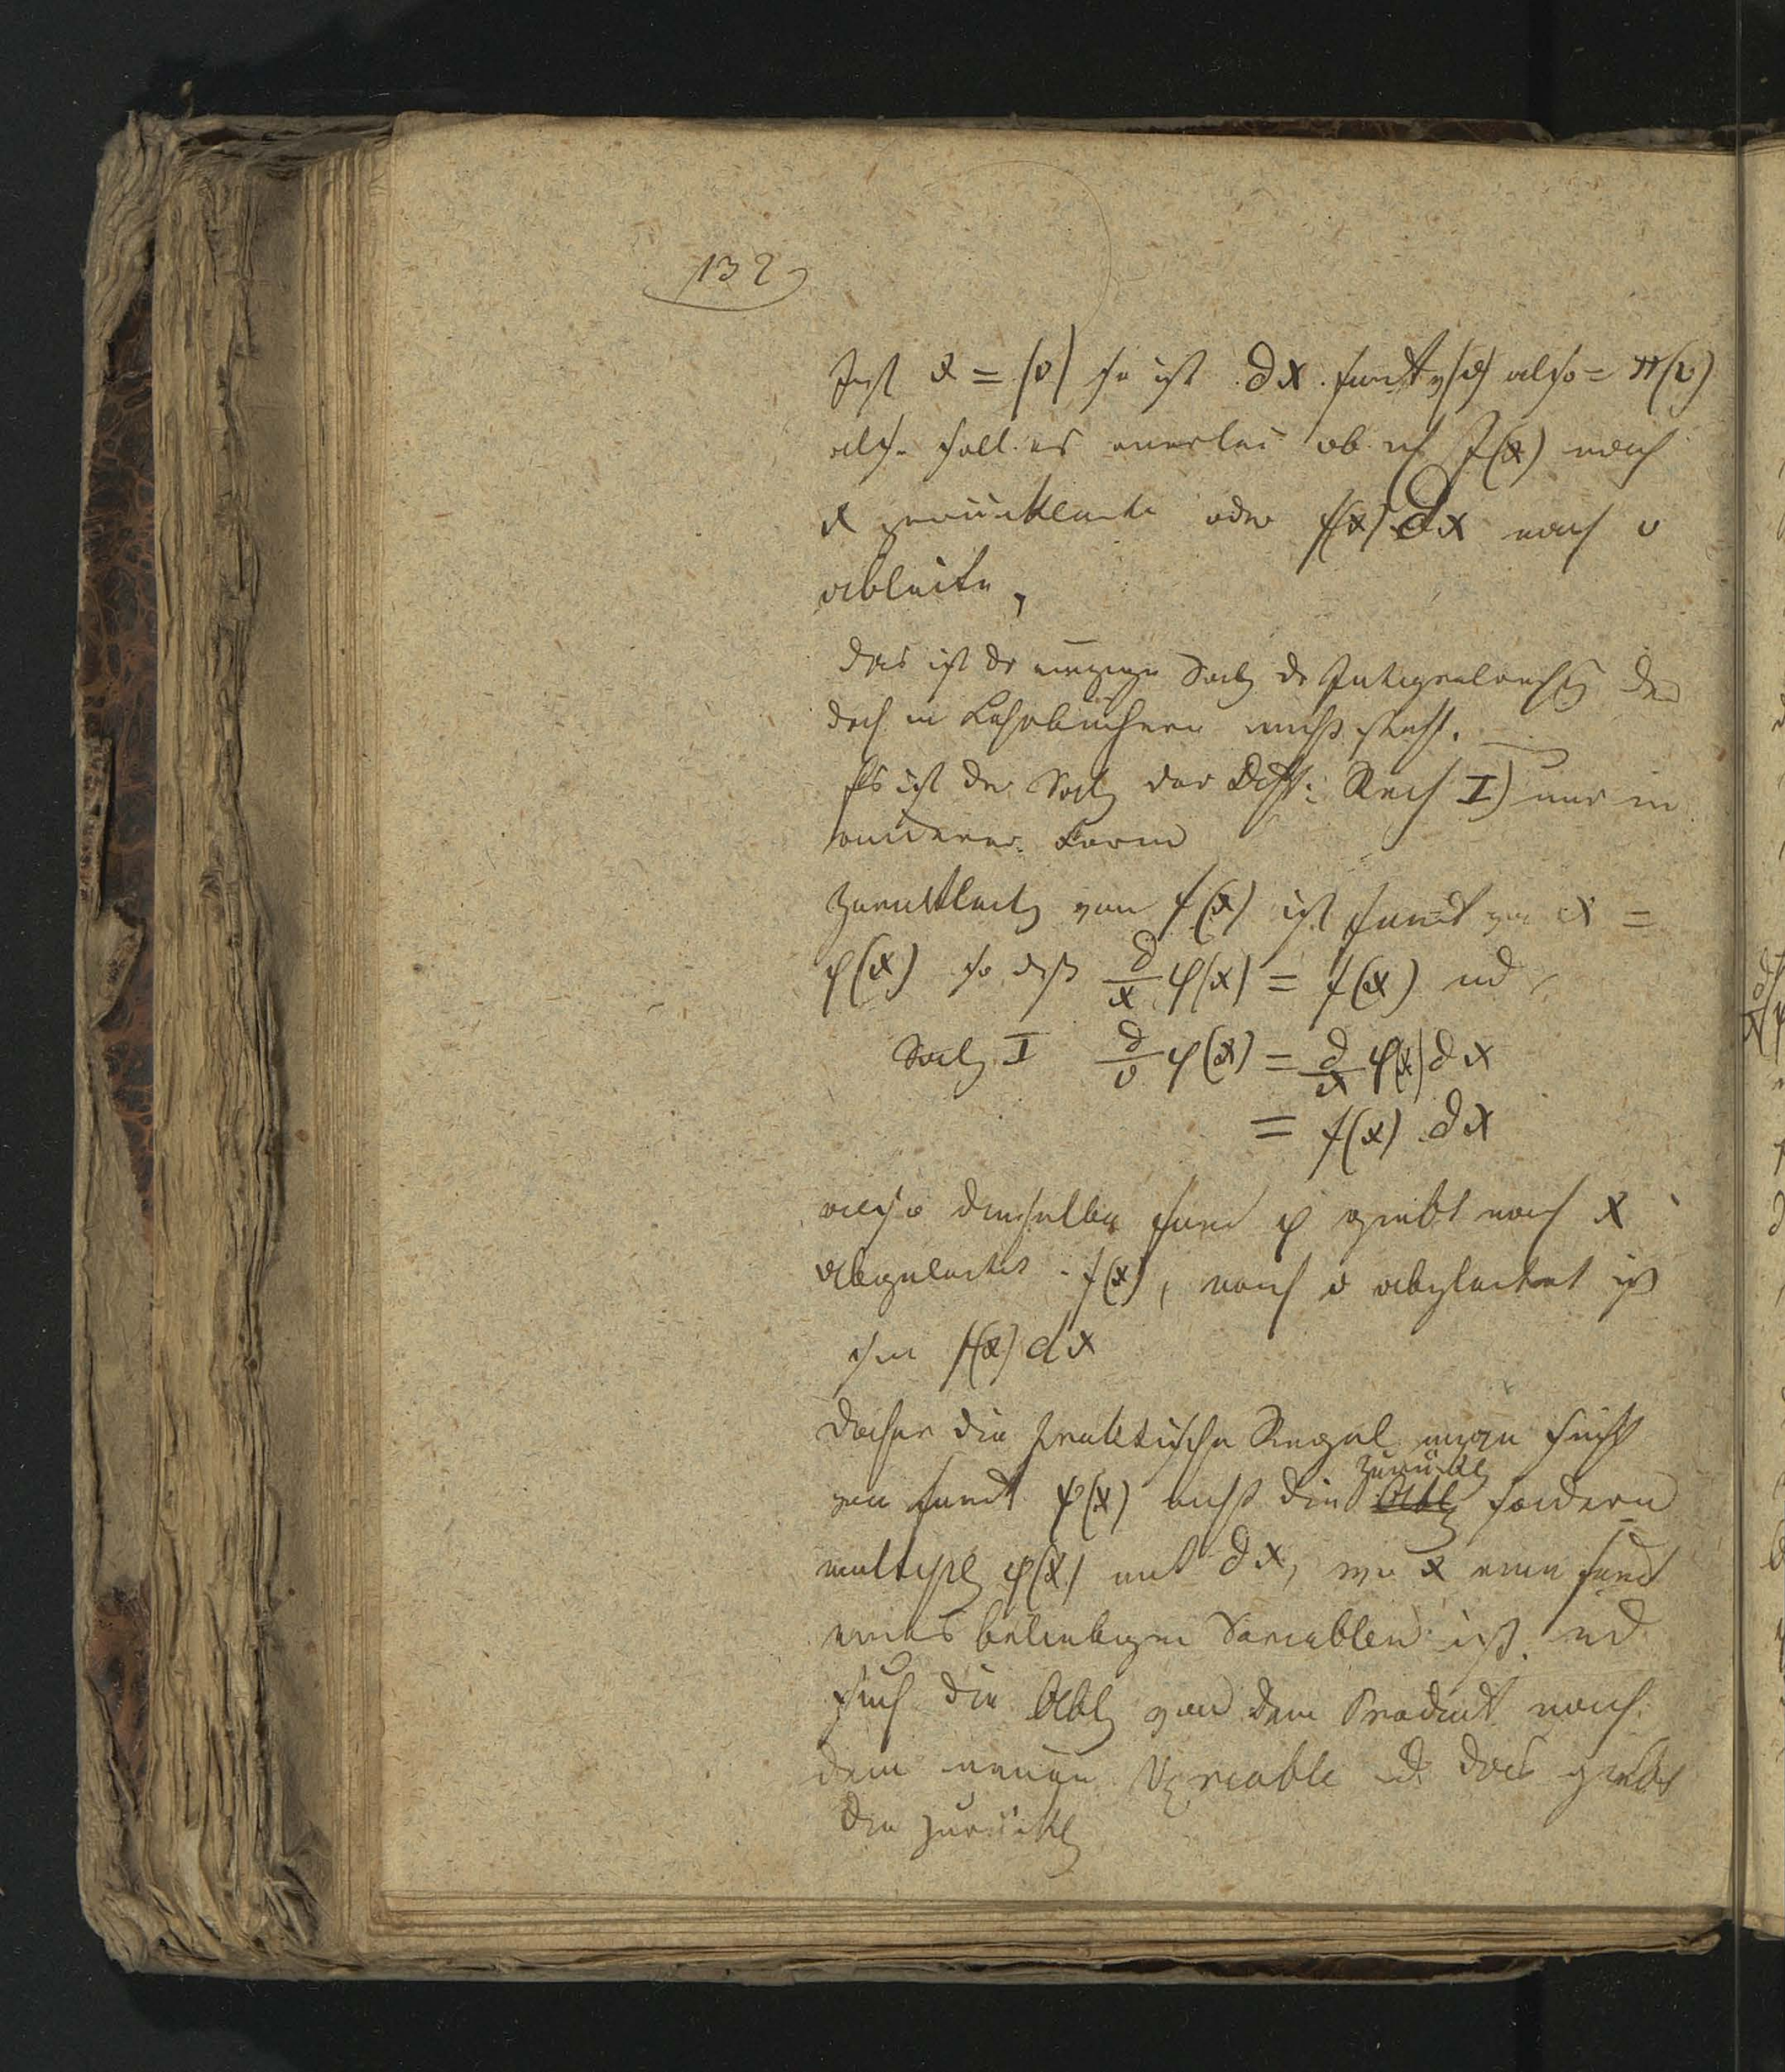 132
Ist x = (v) so ist ∂x funct v(v) also = π(v)
also soll es einerlei ob ich f(x) nach
x zurückleite oder f(x) ∂x nach v
ableite,
das ist der einzige Satz der Integralrechg der
doch in Lehrbüchern nicht steht.
Es ist der Satz der Diff: Rech I) nur in
anderer Form
Zurückleitg von f(x) ist funct von x =
φ(x) so daß ∂/x φ(x) = f(x) und
Satz I ∂/v φ(x) = ∂/x φ(x) ∂x
= f(x) ∂x
also dieselbe func φ giebt nach x
abgeleitet f(x), nach v abgeleitet ist
sie f(x) dx
Daher die praktische Regel man sucht
von funct φ(x) nicht die zurückl sondern
multipl φ(x) mit ∂x, wo x eine funct
eines beliebigen Variablen ist. und
such die Abl von dem Product nach
dem neuen Variable d. das giebt
die zurückl